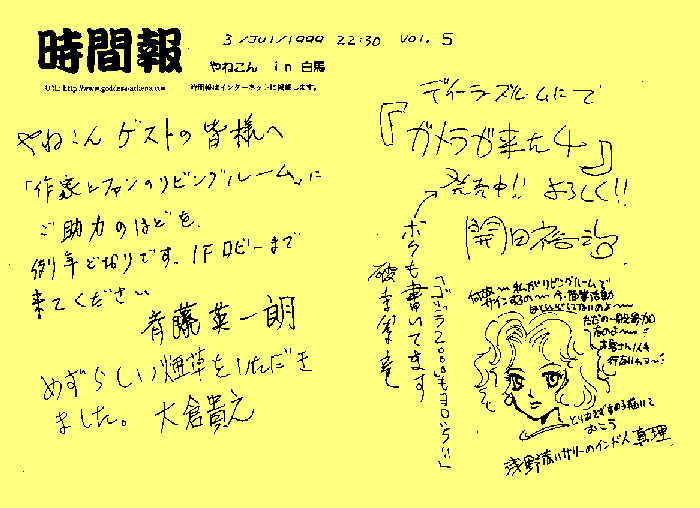 時間報
3/Jul/1999 22:30 Vol. 5
やねこん in 白馬
URL: http://www.goddess-athena.com
時間報はインターネットに掲載します。
やねこん ゲストの皆様へ
「作家とファンのリビングルーム」に
ご助力のほどを、
例年どおりです。1Fロビーまで
来てください
斉藤英一朗
めずらしい煙草をいただき
ました。 大倉貴之
ディーラーズルームにて
『ガメラが来た4』
発売中!! よろしく!!
開田裕治
ボクも書いてます
「ゴジラ2000もヨロシク!!」
何故〜私がリビングルームで
サインするの〜 今、音楽活動
ほとんどしてないのよ〜
ただの一般参加
なのよ〜!
とりあえずまゆ子描いて
おこう
浅野 赤いサリーのインド人 真理